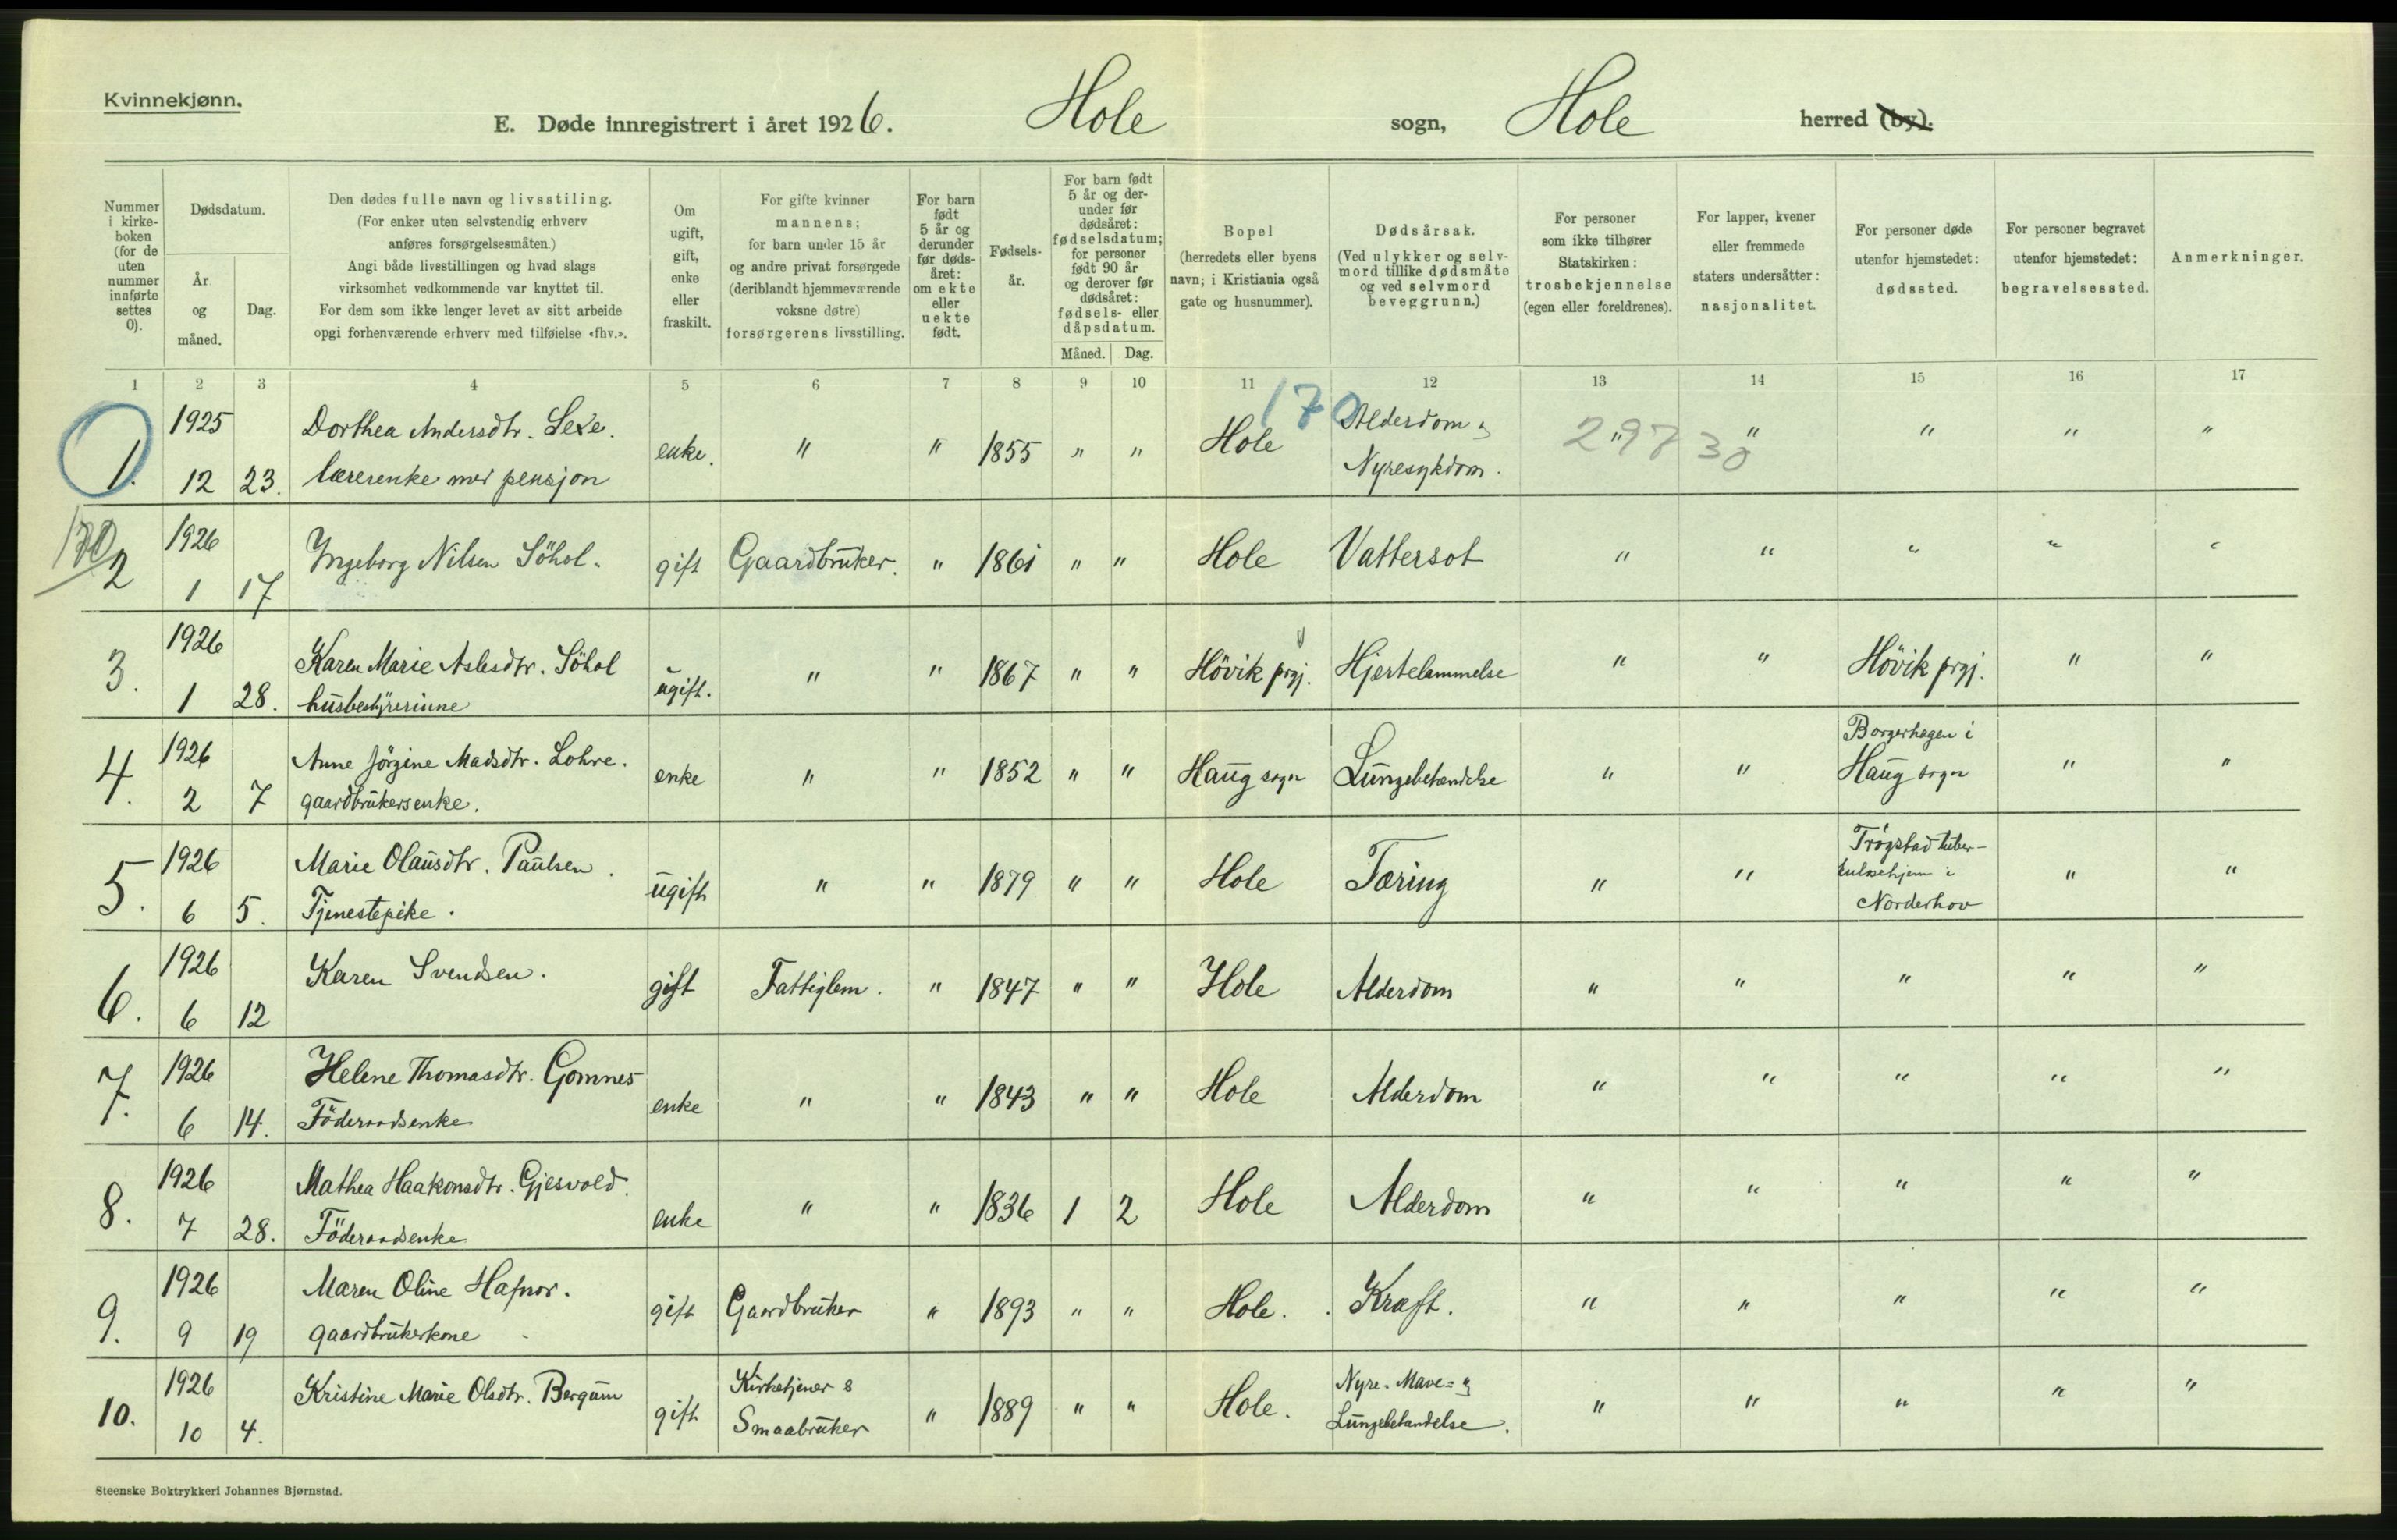 Kvinnekjønn.
E. Døde innregistrert i året 1926. Hole sogn, Hole herred (by).
Nummer i kirkeboken (for de uten nummer innførte settes 0).
Dødsdatum.
År og måned.
Dag.
Den dødes fulle navn og livsstiling.
(For enker uten selvstendig erhverv
anføres forsørgelsesmåten.)
Angi både livsstillingen og hvad slags
virksomhet vedkommende var knyttet til.
For dem som ikke lenger levet av sitt arbeide
opgi forhenværende erhverv med tilføielse «fhv.».
Om ugift, gift, enke eller fraskilt.
For gifte kvinner
mannens;
for barn under 15 år
og andre privat forsørgede
(deriblandt hjemmeværende
voksne døtre)
forsørgerens livsstilling.
For barn født 5 år og derunder før dødsåret: om ekte eller uekte født.
Fødselsår.
For barn født 5 år og derunder før dødsåret: fødselsdatum; for personer født 90 år og derover før dødsåret: fødsels- eller dåpsdatum.
Måned. Dag.
Bopel
(herredets eller byens
navn; i Kristiania også
gate og husnummer).
Dødsårsak.
(Ved ulykker og selvmord tillike dødsmåte
og ved selvmord
beveggrunn.)
For personer
som ikke tilhører
Statskirken:
trosbekjennelse
(egen eller foreldrenes).
For lapper, kvener
eller fremmede
staters undersåtter:
nasjonalitet.
For personer døde
utenfor hjemstedet:
dødssted.
For personer begravet
utenfor hjemstedet:
begravelsessted.
Anmerkninger.
1 2 3 4 5 6 7 8 9 10 11 12 13 14 15 16 17
170
1. 1925 12 23. Dorthea Andersdtr. Sexe. lærerenke med pensjon enke. " " 1855 " " Hole Alderdom og Nyresykdom. " " " " "
29730
170
2 1926 1 17 Yngeborg Nilsen Söhol. gift Gaardbruker. " 1861 " " Hole Vattersot " " " " "
3. 1926 1 28. Karen Marie Aslesdtr. Söhol husbestyrerinne ugift. " " 1867 " " Hövik prgj. Hjertelammelse " " Hövik prgj. " "
4. 1926 2 7 Anne Jörgine Madsdtr. Lohre. gaardbrukersenke. enke " " 1852 " " Haug sogn Lungebetændelse " " Borgerhagen i Haug sogn " "
5. 1926 6 5. Marie Olausdtr. Paulsen. Tjenestepike. ugift " " 1879 " " Hole Tæring " " Trögstad tuberkulosehjem i Norderhov " "
6. 1926 6 12 Karen Svendsen. gift Fattiglem. " 1847 " " Hole Alderdom " " " " "
7. 1926 6 14. Helene Thomasdtr. Gomnes Föderaadsenke enke " " 1843 " " Hole Alderdom " " " " "
8. 1926 7 28. Mathea Haakonsdtr. Gjesvold. Föderaadsenke enke " " 1836 1 2 Hole Alderdom " " " " "
9. 1926 9 19 Maren Oline Hafnor. gaardbrukerkone gift Gaardbruker " 1893 " " Hole. Kræft. " " " " "
10. 1926 10 4. Kristine Marie Olsdtr. Bergum gift Kirketjener & Smaabruker " 1889 " " Hole. Nyre- Mave- og Lungebetændelse. " " " " "
Steenske Boktrykkeri Johannes Bjørnstad.